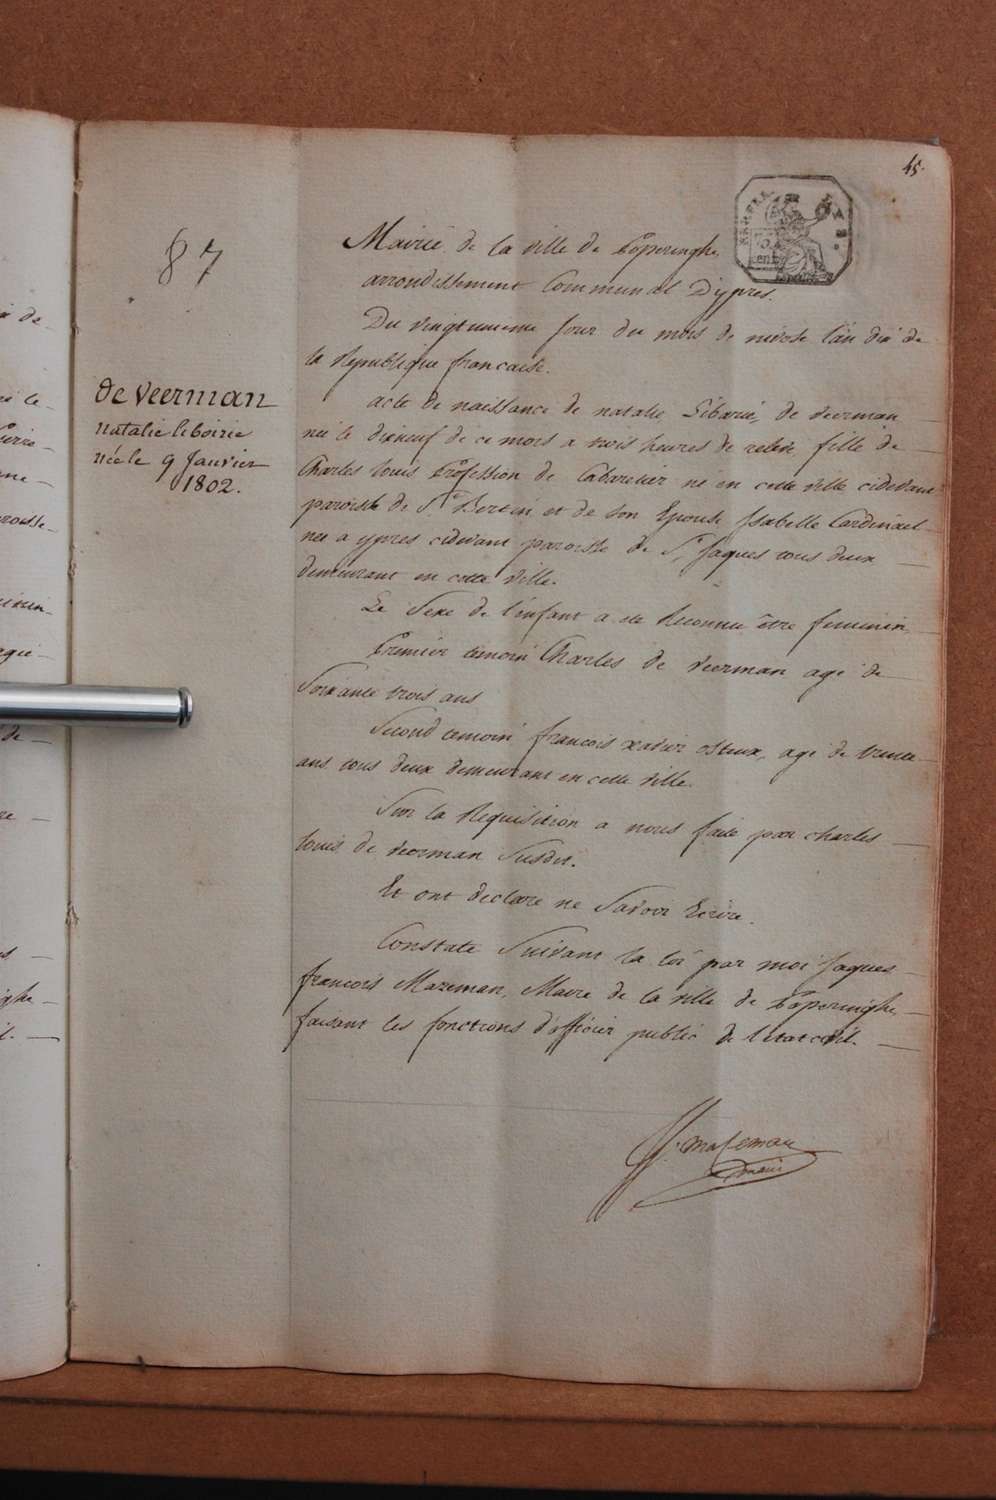 45.
87
Mairie de la ville de Poperinghe
arrondissement Communal D'ypres.
Du vingtunieme jour du mois de nivose l'an dix de
la Republique francaise.
de veerman
natalie liboirie
née le 9 Janvier
1802.
acte de naissance de natalie Libarie, de veerman
née le dixneuf de ce mois a trois heures de relevé fille de
Charles louis Profession de Cabaretier né en cette ville cidevant
paroisse de St Bertin et de son Epouse Isabelle Cardinael
née a ypres cidevant paroisse de St Jaques tous deux
demeurant en cette ville.
Le Sexe de l'enfant a ete Reconnu être feminin
Premier temoin Charles de veerman agé de
Soixante trois ans
Second temoin francois xavier osteux, agé de trente
ans tous deux demeurant en cette ville.
Sur la Requisition a nous faite par charles
louis de veerman Susdit.
Et ont declare ne Savoir Ecrire.
Constate Suivant la loi par moi Jaques
francois Mazeman, Maire de la ville de Poperinghe,
faisant les fonctions d'officier public de l'état civil.
mazeman
maire